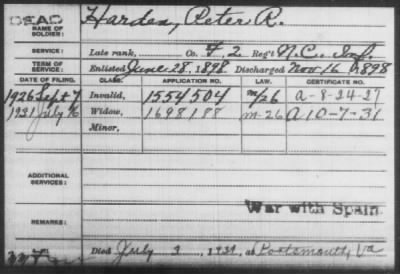 DEAD Harden, Peter R.
NAME OF SOLDIER:
SERVICE: Late rank, Co. H 2 Reg't N.C. Inf.
TERM OF SERVICE: Enlisted June 28, 1898 Discharged Nov 16, 1898
DATE OF FILING. CLASS. APPLICATION NO. LAW. CERTIFICATE NO.
1926 Sept 7 Invalid, 1554504 M/26 A-8-24-27
1931 July Widow, 1698188 M-26 A 10-7-31
Minor,
ADDITIONAL SERVICES:
War with Spain.
REMARKS:
Died July 3, 1931, at Portsmouth, Va